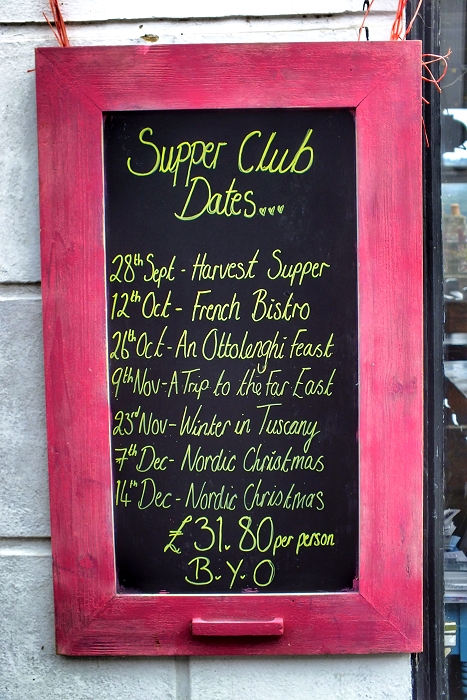 Supper Club
Dates...
28th Sept - Harvest Supper
12th Oct - French Bistro
26th Oct - An Ottolenghi Feast
9th Nov - A Trip to the Far East
23rd Nov - Winter in Tuscany
7th Dec - Nordic Christmas
14th Dec - Nordic Christmas
£31.80 per person
B.Y.O